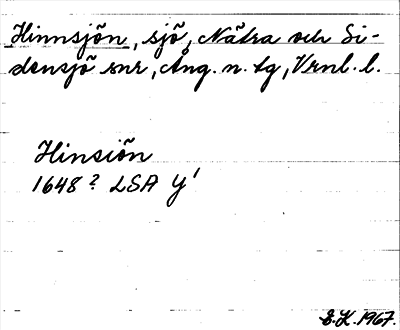 Hinnsjön, sjö, Nätra och Si-
densjö snr, Ång. n. tg, Vrnl. l.
Hinsiön
1648? LSA Y'
E.K. 1967.